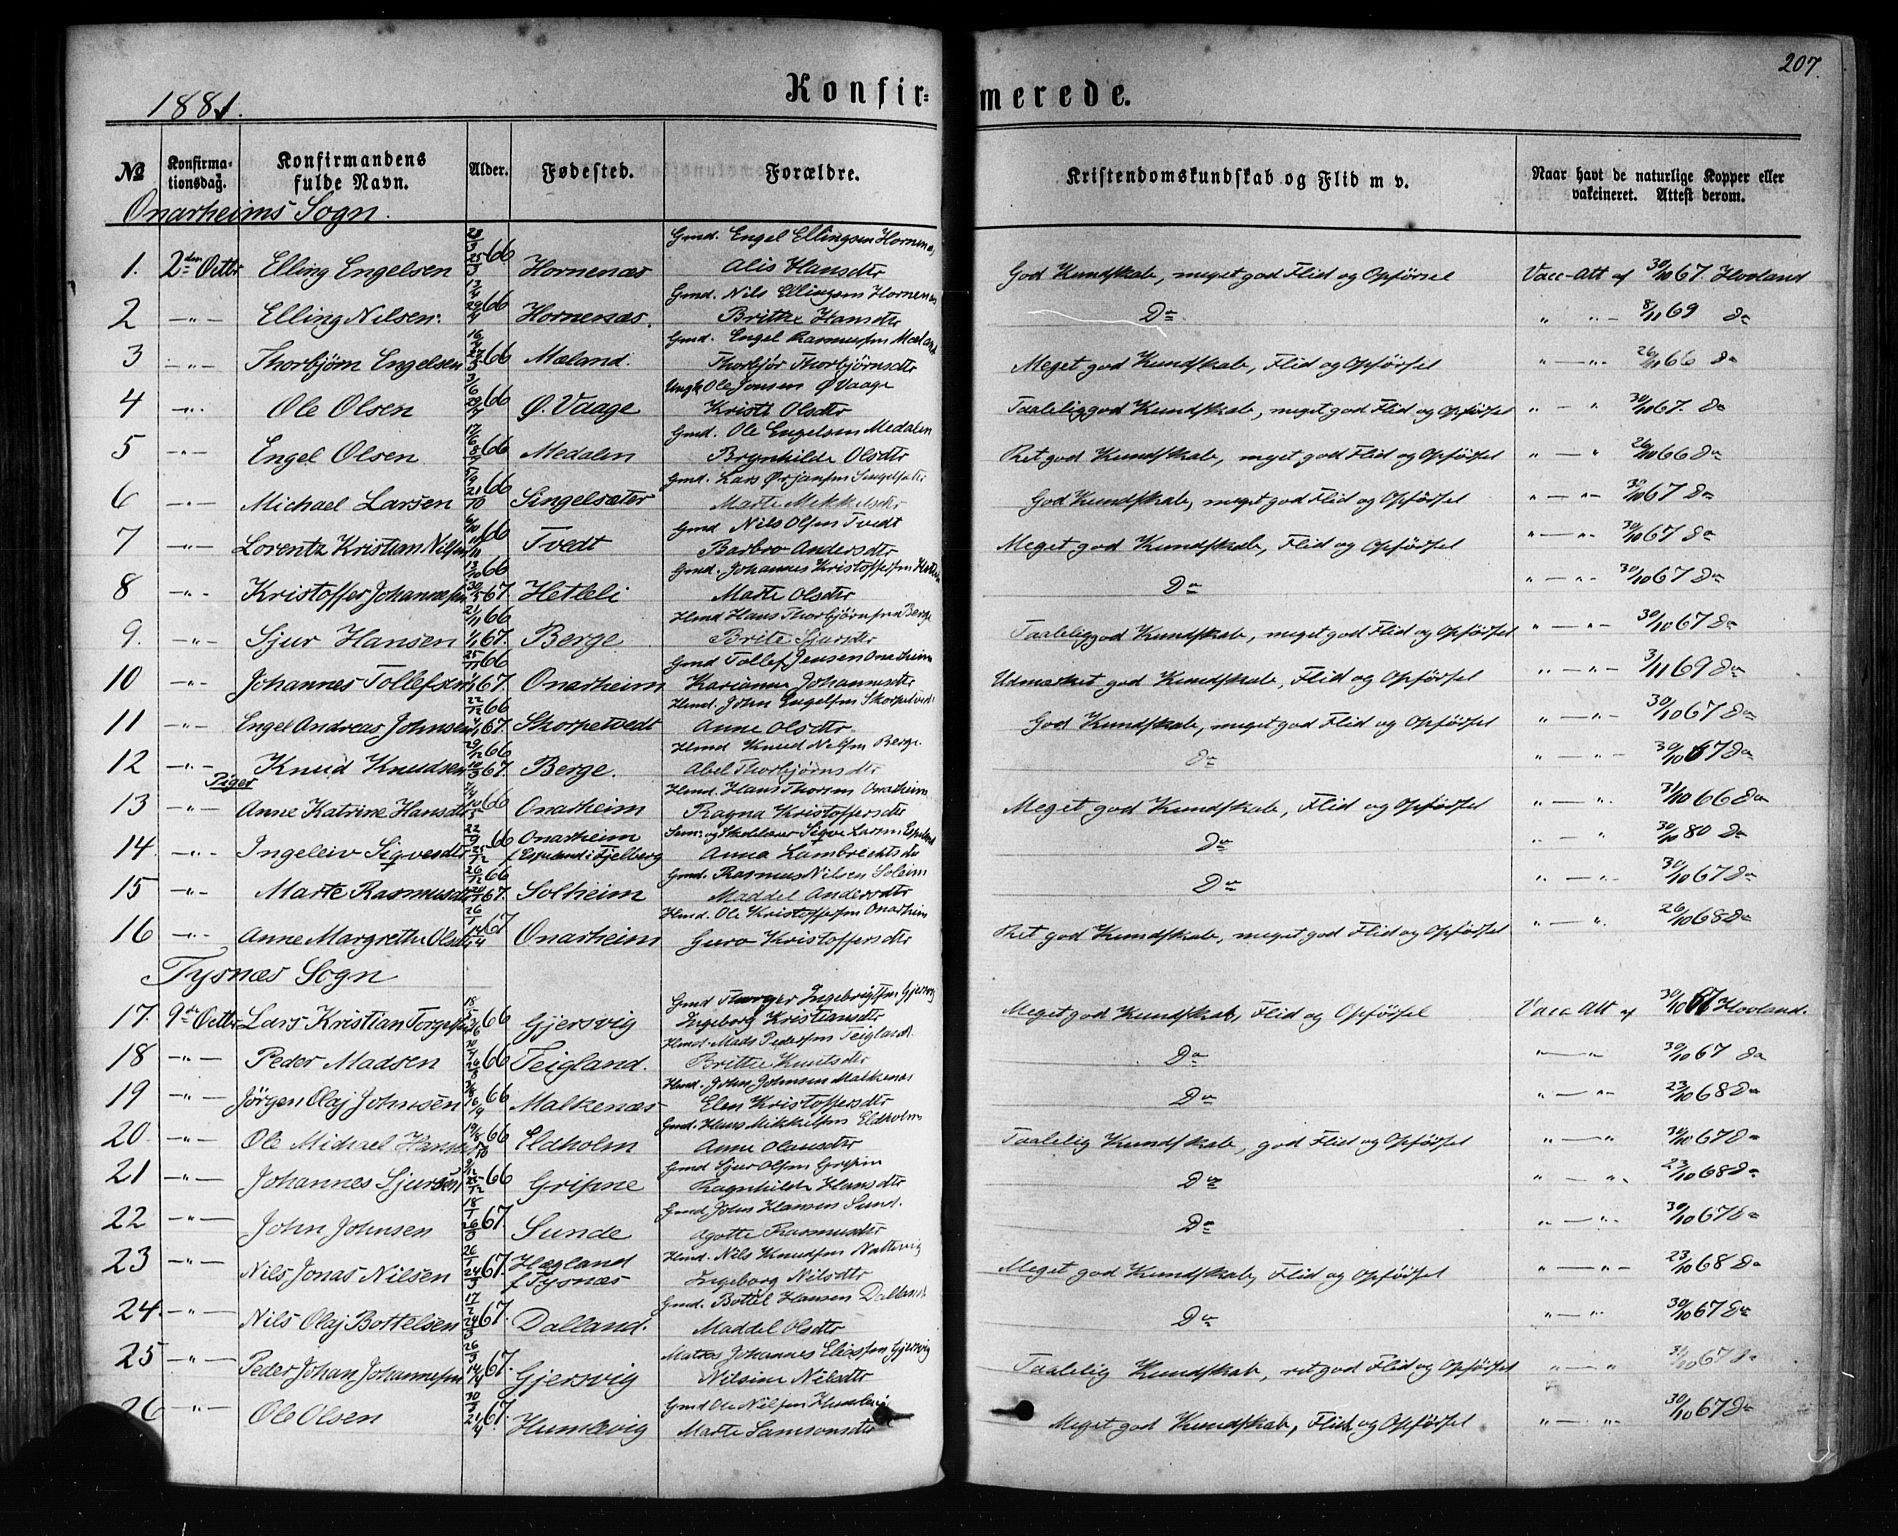 207.
1881.
Konfir= merede.
№ Konfirma-tionsdag. Konfirmandens fulde Navn. Alder. Fødested. Forældre. Kristendomskundskab og Flid m v. Naar havt de naturlige Kopper eller vakcineret. Attest derom.
Onarheims Sogn.
Gmd. Engel Ellingsen Hornenæs
1. 2den Octbr Elling Engelsen 66 Hornenæs Alis Hansdtr God Kundskab, meget god Flid og Opførsel Vacc-Att af 30/10 67. Hovland
Gmd. Nils Ellingsen Hornenæs
2 -"- Elling Nilsen. 66 Hornenæs. Brithe Hansdtr Do " "- 8/11 69 do
Gmd. Engel Rasmussen Mæland
3 -"- Thorbjørn Engelsen 66 Mæland. Thorbjør Thorbjørnsdtr Meget god Kundskab, Flid og Opførsel " -"- 26/10 66 do
Ungk Ole Jonsen Ø Vaage
4 -"- Ole Olsen 66 Ø. Vaage Kristi Olsdtr Taalelig god Kundskab, meget god Flid og Opførsel " - " 30/10 67. do
Gmd. Ole Engelsen Medalen
5 -"- Engel Olsen 66 Medalen Brynhilde Olsdtr Ret god Kundskab, meget god Flid og Opførsel " - " 26/10 66 do
Gmd. Lars Ørjansen Singelsæter
6 -"- Michael Larsen 66 Singelsæter Marte Mikkelsdtr God Kundskab, meget god Flid og Opførsel " - "- 30/10 67 do
Gmd Nils Olsen Tvedt
7 -"- Lorentz Kristian Nilsen 66 Tvedt Barbro Andersdtr Meget god Kundskab, Flid og Opførsel " -"- 30/10 67 do
Gmd. Johannes Kristoffersen Hetleli
8 -"- Kristoffer Johannessen 66 67. Hetleli Marte Olsdtr Do " - "- 30/10 67 do
Hmd Hans Thorbjørnsen Berge
9. -"- Sjur Hansen 66 67. Berge Brite Sjursdtr Taalelig god Kundskab, meget god Flid og Opførsel " - "- 30/10 67 do
Gmd Tollef Jensen Onarheim
10 -"- Johannes Tollefsen 66 67. Onarheim Karianna Johannesdtr Udmærket god Kundskab, Flid og Opførsel " - "- 3/11 69 do
Hmd. John Engelsen Skorpetvedt
11 -"- Engel Andreas Johnsen 66 67. Skorpetvedt Anne Olsdtr God Kundskab, meget god Flid og Opførsel " - "- 30/10 67 do
Hmd Knud Nilsen Berge.
12 -"- Knud Knudsen 66 67. Berge. Abel Thorbjørnsdtr do " - "- 30/10 67 do
Piger
Hmd. Hans Thorsen Onarheim
13 -"- Anne Katrine Hansdtr 66 Onarheim Ragna Kristoffersdtr Meget god Kundskab, Flid og Opførsel " - ". 31/10 66 do
Sem: og Skolelærer Sigve Larsen Espeland
14. -"- Ingeleiv Sigvesdtr 66 Onarheim f. Espeland i Fjelberg Anna Lambrechtsdtr Do " " 30/10 80 do
Gmd. Rasmus Nilsen Soleim
15 -"- Marte Rasmusdtr 66 67. Solheim Maddel Andersdtr Do " - "- 30/10 67 do
Hmd. Ole Kristoffersen Onarheim
16 -"- Anne Margrethe Olsdtr 67 Onarheim Guro Kristoffersdtr Ret god Kundskab, meget god Flid og Opførsel " - ". 26/10 68 do
Tysnæs Sogn
Gmd Thorger Ingebrigtsen Gjersvig
17. 9de Octbr Lars Kristian Torgersen 66 Gjersvig Ingeborg Kristiansdtr Meget god Kundskab, Flid og Opførsel Vacc-Att af 30/10 67 Hovland.
Hmd Mads Pedersen Teigland
18 -"- Peder Madsen 66 Teigland. Brithe Knutsdtr Do "-" 30/10 67 do
Hmd. John Johnsen Malkenæs
19 -"- Jörgen Olaj Johnsen 66 Malkenæs Elen Kristoffersdtr Do " -" 23/10 68 do
Gmd. Hans Mikkelsen Eldholm
20. -"- Ole Michael Hansen 66 Eldholm Anne Olausdtr Taalelig Kundskab, god Flid og Opførsel " - " 30/10 67 do
Gmd Sjur Olsen Gripne
21 -"- Johannes Sjursen 66 Gripne Ragnhilde Hansdtr Do " - ". 23/10 68 do
Gmd John Hansen Sund.
22 -"- John Johnsen 67. Sunde Agotte Rasmusdtr Do " - ". 30/10 67 do
Hmd. Nils Knudsen Nattevig
23 -"- Nils Jonas Nilsen 67. Hægland f Tysnæs Ingeborg Nilsdtr Meget god Kundskab, Flid og Opførsel " - "- 23/10 68 do
Gmd. Bottel Hansen Dalland
24. -"- Nils Olaj Bottelsen 67. Dalland. Maddel Olsdtr Do " -" 30/10 67 do
Matros Johannes Eliassen Gjersvig
25 -"- Peder Johan Johannessen 67. Gjersvig Nilsine Nilsdtr Taalelig Kundskab, ret god Flid og Opførsel " - " 30/10 67 do
Gmd Ole Nilsen Humlevig
26 -"- Ole Olsen 67. Humlevig Marte Samsonsdtr Meget god Kundskab, Flid og Opførsel " - ". 30/10 67 do